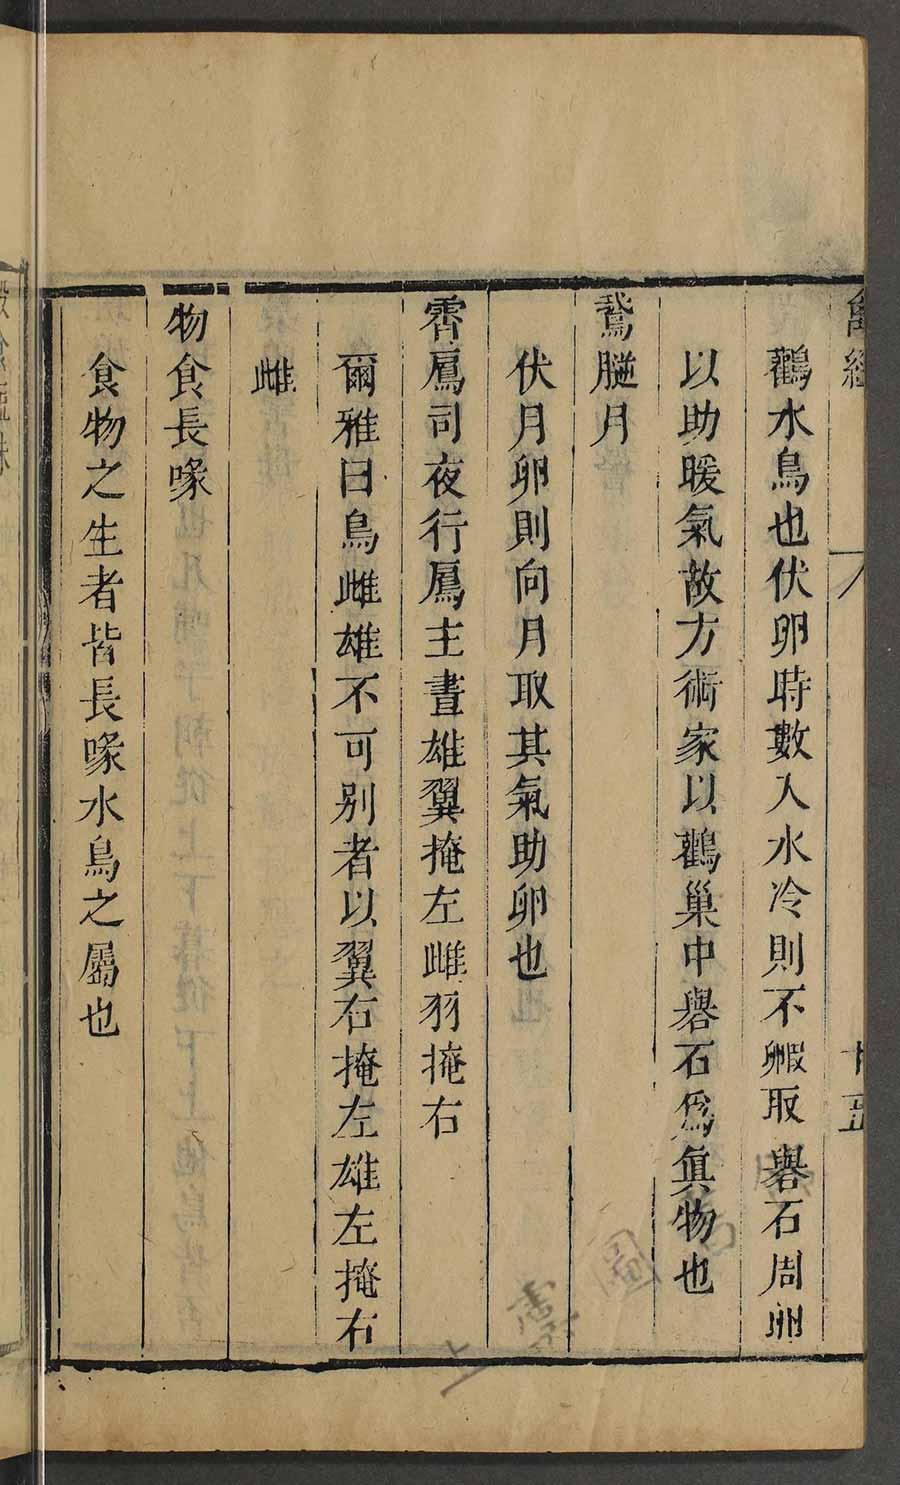 禽經
十五
鸛水鳥也伏卵時數入水冷則不毈取礜石周卵
以助暖氣故方術家以鸛巢中礜石爲眞物也
鵞腿月
伏月卵則向月取其氣助卵也
霽鳫司夜行鳫主晝雄翼掩左雌羽掩右
爾雅曰鳥雌雄不可别者以翼右掩左雄左掩右
雌
物食長喙
食物之生者皆長喙水鳥之屬也